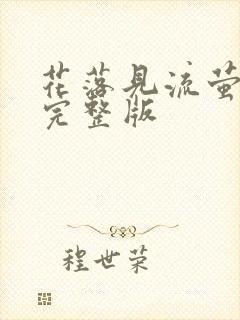 花落见流萤
完整版
程世荣